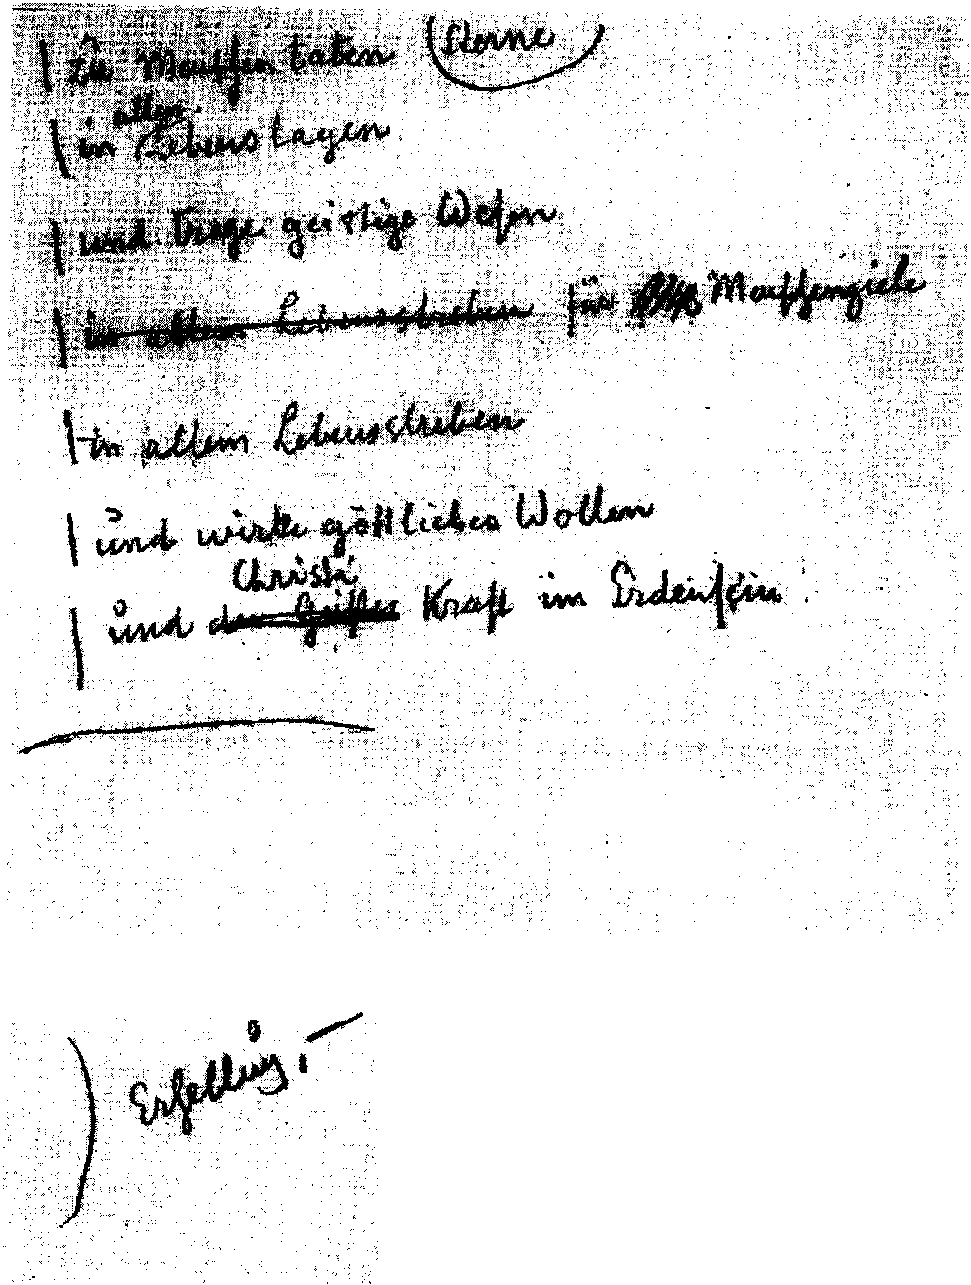 zu Menschentaten (Sterne)
allen
in Lebenstagen
und trage geistige Wesen
in allem Lebensstreben für Menschenziele
in allem Lebensstreben
und wirke göttliches Wollen
Christi
und des Geistes Kraft im Erdensein.
) Erhellung. —